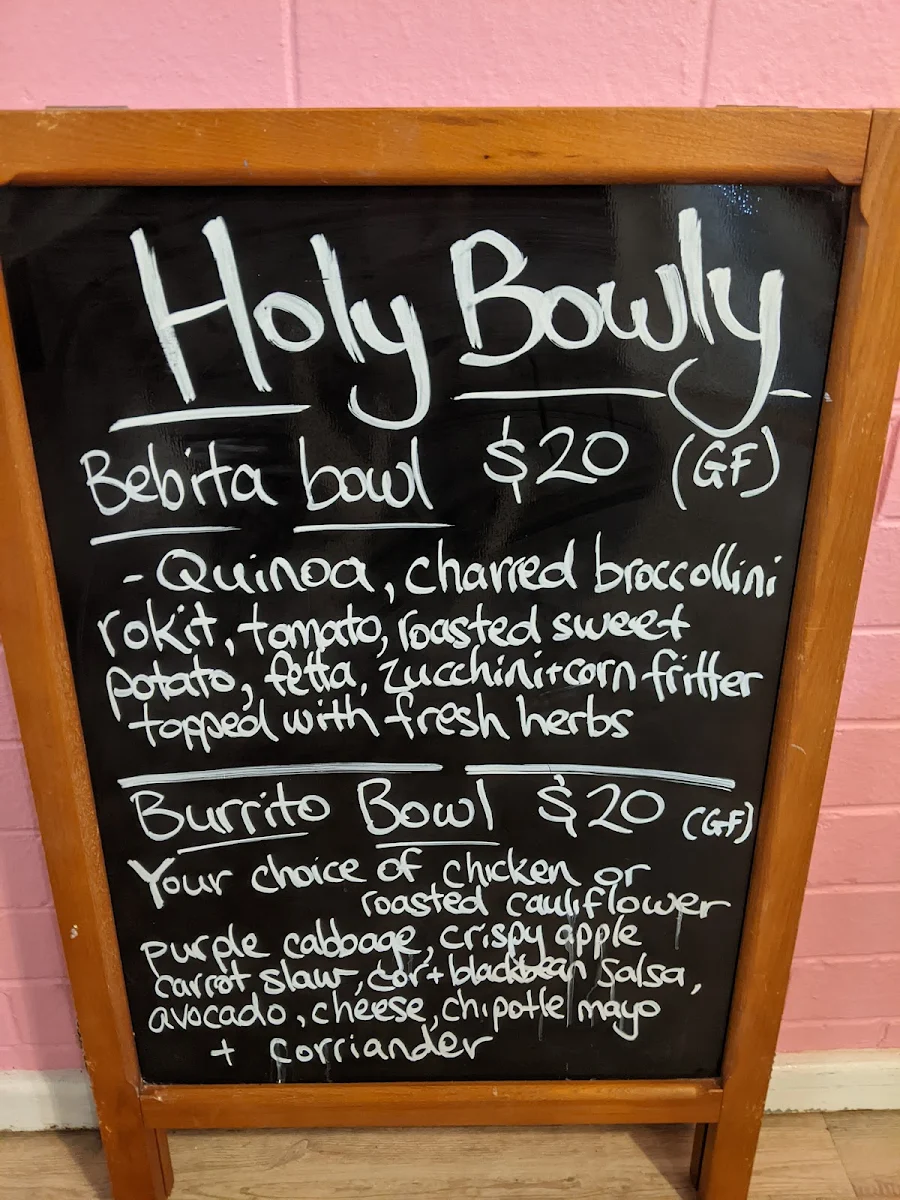 Holy Bowly
Bebita bowl $20 (GF)
- Quinoa, charred broccollini
rokit, tomato, roasted sweet
potato, fetta, zucchini+corn fritter
topped with fresh herbs
Burrito Bowl $20 (GF)
Your choice of chicken or
roasted cauliflower
purple cabbage, crispy apple
carrot slaw, cor+blackbean salsa,
avocado, cheese, chipotle mayo
+ corriander